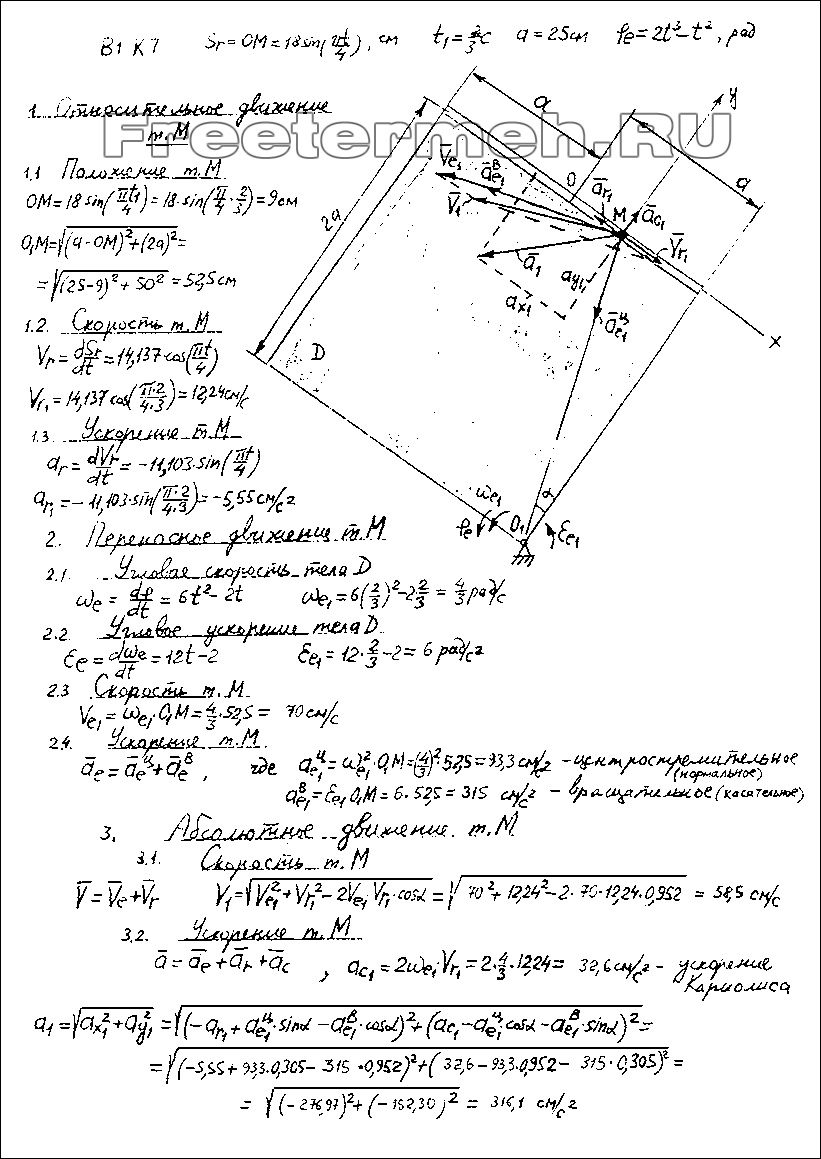 В1 К7 Sr = OM = 18 sin(πt/4), см t₁ = 2/3 с a = 25 см φe = 2t³ − t², рад
1. Относительное движение
т. М
Freetermeh.RU
1.1 Положение т. М
OM = 18 sin(πt₁/4) = 18 · sin(π/4 · 2/3) = 9 см
O₁M = √((a − OM)² + (2a)²) =
= √((25 − 9)² + 50²) = 52,5 см
1.2. Скорость т. М
Vr = dSr/dt = 14,137 cos(πt/4)
Vr₁ = 14,137 cos(π·2/4·3) = 12,24 см/с
1.3. Ускорение т. М
ar = dVr/dt = −11,103 · sin(πt/4)
ar₁ = −11,103 · sin(π·2/4·3) = −5,55 см/с²
a
a
2a
y
x
O
M
D
V̄e₁
āe₁ᴮ
V̄₁
ār₁
āc₁
V̄r₁
ā₁
ay₁
ax₁
āe₁ᶭ
ωe₁
φe
O₁
α
εe₁
2. Переносное движение т. М
2.1. Угловая скорость тела D
ωe = dφ/dt = 6t² − 2t ωe₁ = 6(2/3)² − 2 2/3 = 4/3 рад/с
2.2 Угловое ускорение тела D
εe = dωe/dt = 12t − 2 εe₁ = 12 · 2/3 − 2 = 6 рад/с²
2.3 Скорость т. М
Ve₁ = ωe₁ · O₁M = 4/3 · 52,5 = 70 см/с
2.4. Ускорение т. М
āe = āeᶭ + āeᴮ, где ae₁ᶭ = ωe₁² · O₁M = (4/3)² · 52,5 = 93,3 см/с² – центростремительное
(нормальное)
ae₁ᴮ = εe₁ O₁M = 6 · 52,5 = 315 см/с² – вращательное (касательное)
3. Абсолютное движение т. М
3.1. Скорость т. М
V̄ = V̄e + V̄r V₁ = √(Ve₁² + Vr₁² − 2Ve₁ Vr₁ · cosα) = √(70² + 12,24² − 2 · 70 · 12,24 · 0,952) = 58,5 см/с
3.2. Ускорение т. М
ā = āe + ār + āc, ac₁ = 2ωe₁ Vr₁ = 2 · 4/3 · 12,24 = 32,6 см/с² – ускорение
Кариолиса
a₁ = √(ax₁² + ay₁²) = √((−ar₁ + ae₁ᶭ · sinα − ae₁ᴮ · cosα)² + (ac₁ − ae₁ᶭ cosα − ae₁ᴮ · sinα)²) =
= √((−5,55 + 93,3 · 0,305 − 315 · 0,952)² + (32,6 − 93,3 · 0,952 − 315 · 0,305)²) =
= √((−276,97)² + (−152,30)²) = 316,1 см/с²